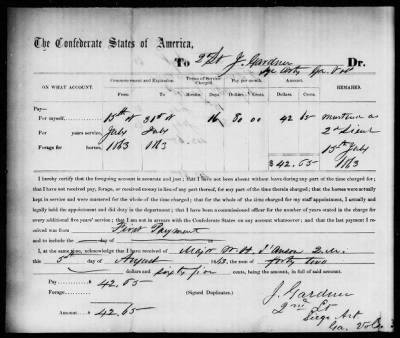 The Confederate States of America,
To 2d Lt J. Gardner Dr.
ON WHAT ACCOUNT. Commencement and Expiration. Terms of Service Charged. Pay per month. Amount. REMARKS.
From To Months. Days. Dollars. Cents. Dollars. Cents.
Pay—
For myself, 15th 31st 16 80 00 42 65 Mustered as
For years service, July July 2d Lieut
Forage for horses, 1863 1863 15th July
$42.65 1863
I hereby certify that the foregoing account is accurate and just; that I have not been absent without leave during any part of the time charged for;
that I have not received pay, forage, or received money in lieu of any part thereof, for any part of the time therein charged; that the horses were actually
kept in service and were mustered for the whole of the time charged; that for the whole of the time charged for my staff appointment, I actually and
legally held the appointment and did duty in the department; that I have been a commissioned officer for the number of years stated in the charge for
every additional five years' service; that I am not in arrears with the Confederate States on any account whatsoever; and that the last payment I
received was from First Payment
and to include the day of
I, at the same time, acknowledge that I have received of Major W. H. I'Anson Q.M.
this 5th day of August 1863, the sum of forty two
dollars and sixty five cents, being the amount, in full of said account.
Pay 42.65
Forage (Signed Duplicates.)
Amount $42.65
J. Gardner
2nd Lt
Siege Art
Ga. Vols.